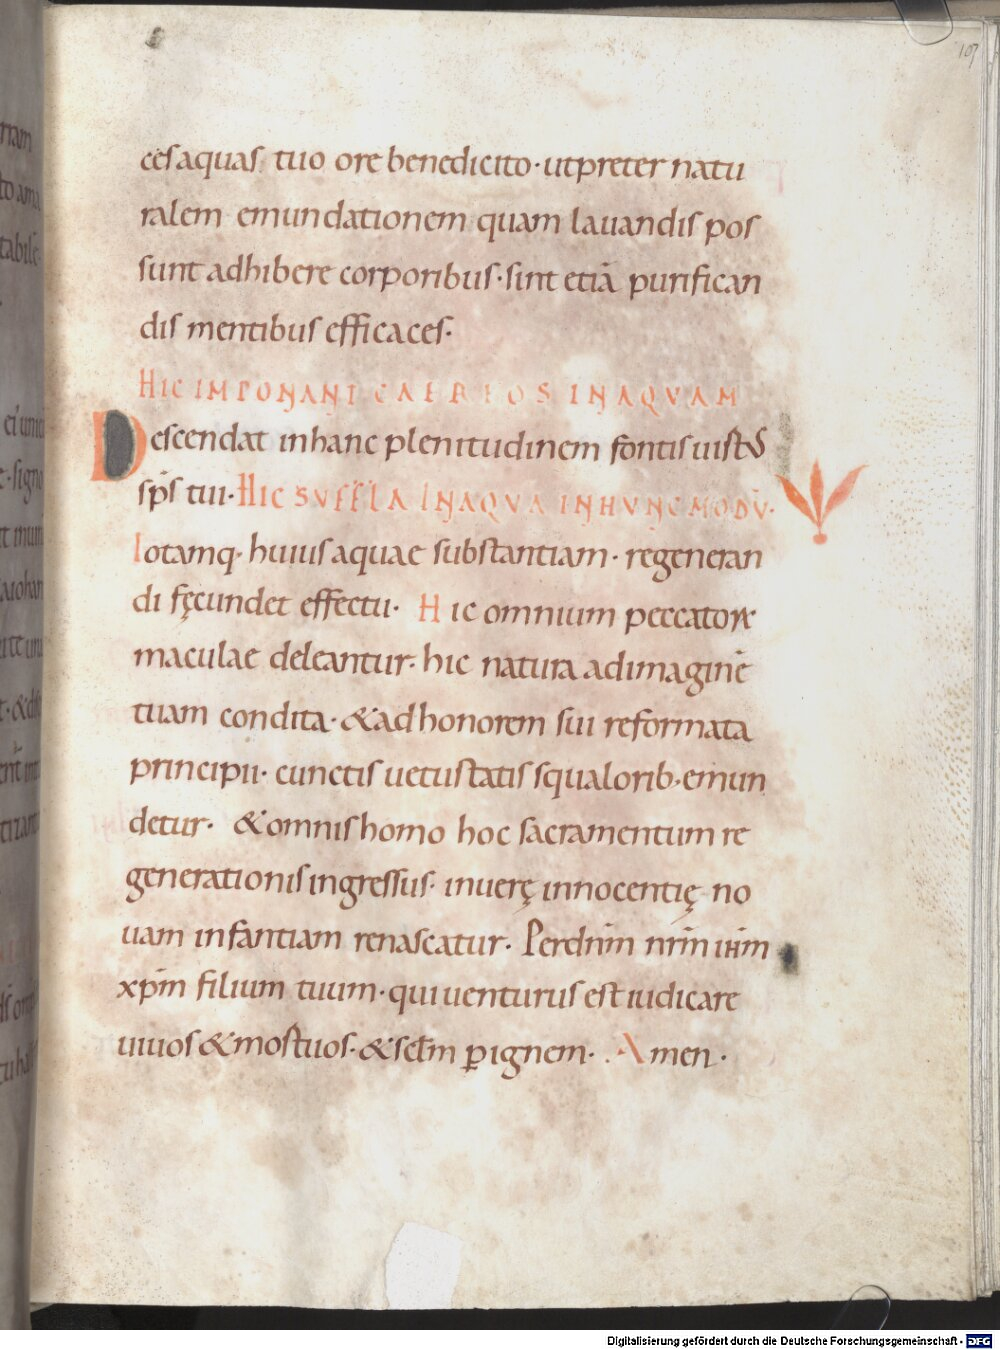 107
ces aquas tuo ore benedicito· ut preter natu
ralem emundationem quam lauandis pos
sunt adhibere corporibus· sint etiā purifican
dis mentibus efficaces·
HIC IMPONANT CAEREOS IN AQVAM
Descendat in hanc plenitudinem fontis uirtus
sp̄s tui· HIC SVFFLA IN AQVA IN HVNC MODV̄·
Totamq· huius aquae substantiam· regeneran
di fęcundet effectu· Hic omnium peccatoꝝ
maculae deleantur· hic natura ad imaginē
tuam condita· & ad honorem sui reformata
principii· cunctis uetustatis squalorib· emun
detur· & omnis homo hoc sacramentum re
generationis ingressus· in uerę innocentię no
uam infantiam renascatur· Per dn̄m nr̄m ih̄m
xp̄m filium tuum· qui uenturus est iudicare
uiuos & mortuos· & sc̄lm ꝑ ignem· Amen·
Digitalisierung gefördert durch die Deutsche Forschungsgemeinschaft - DFG